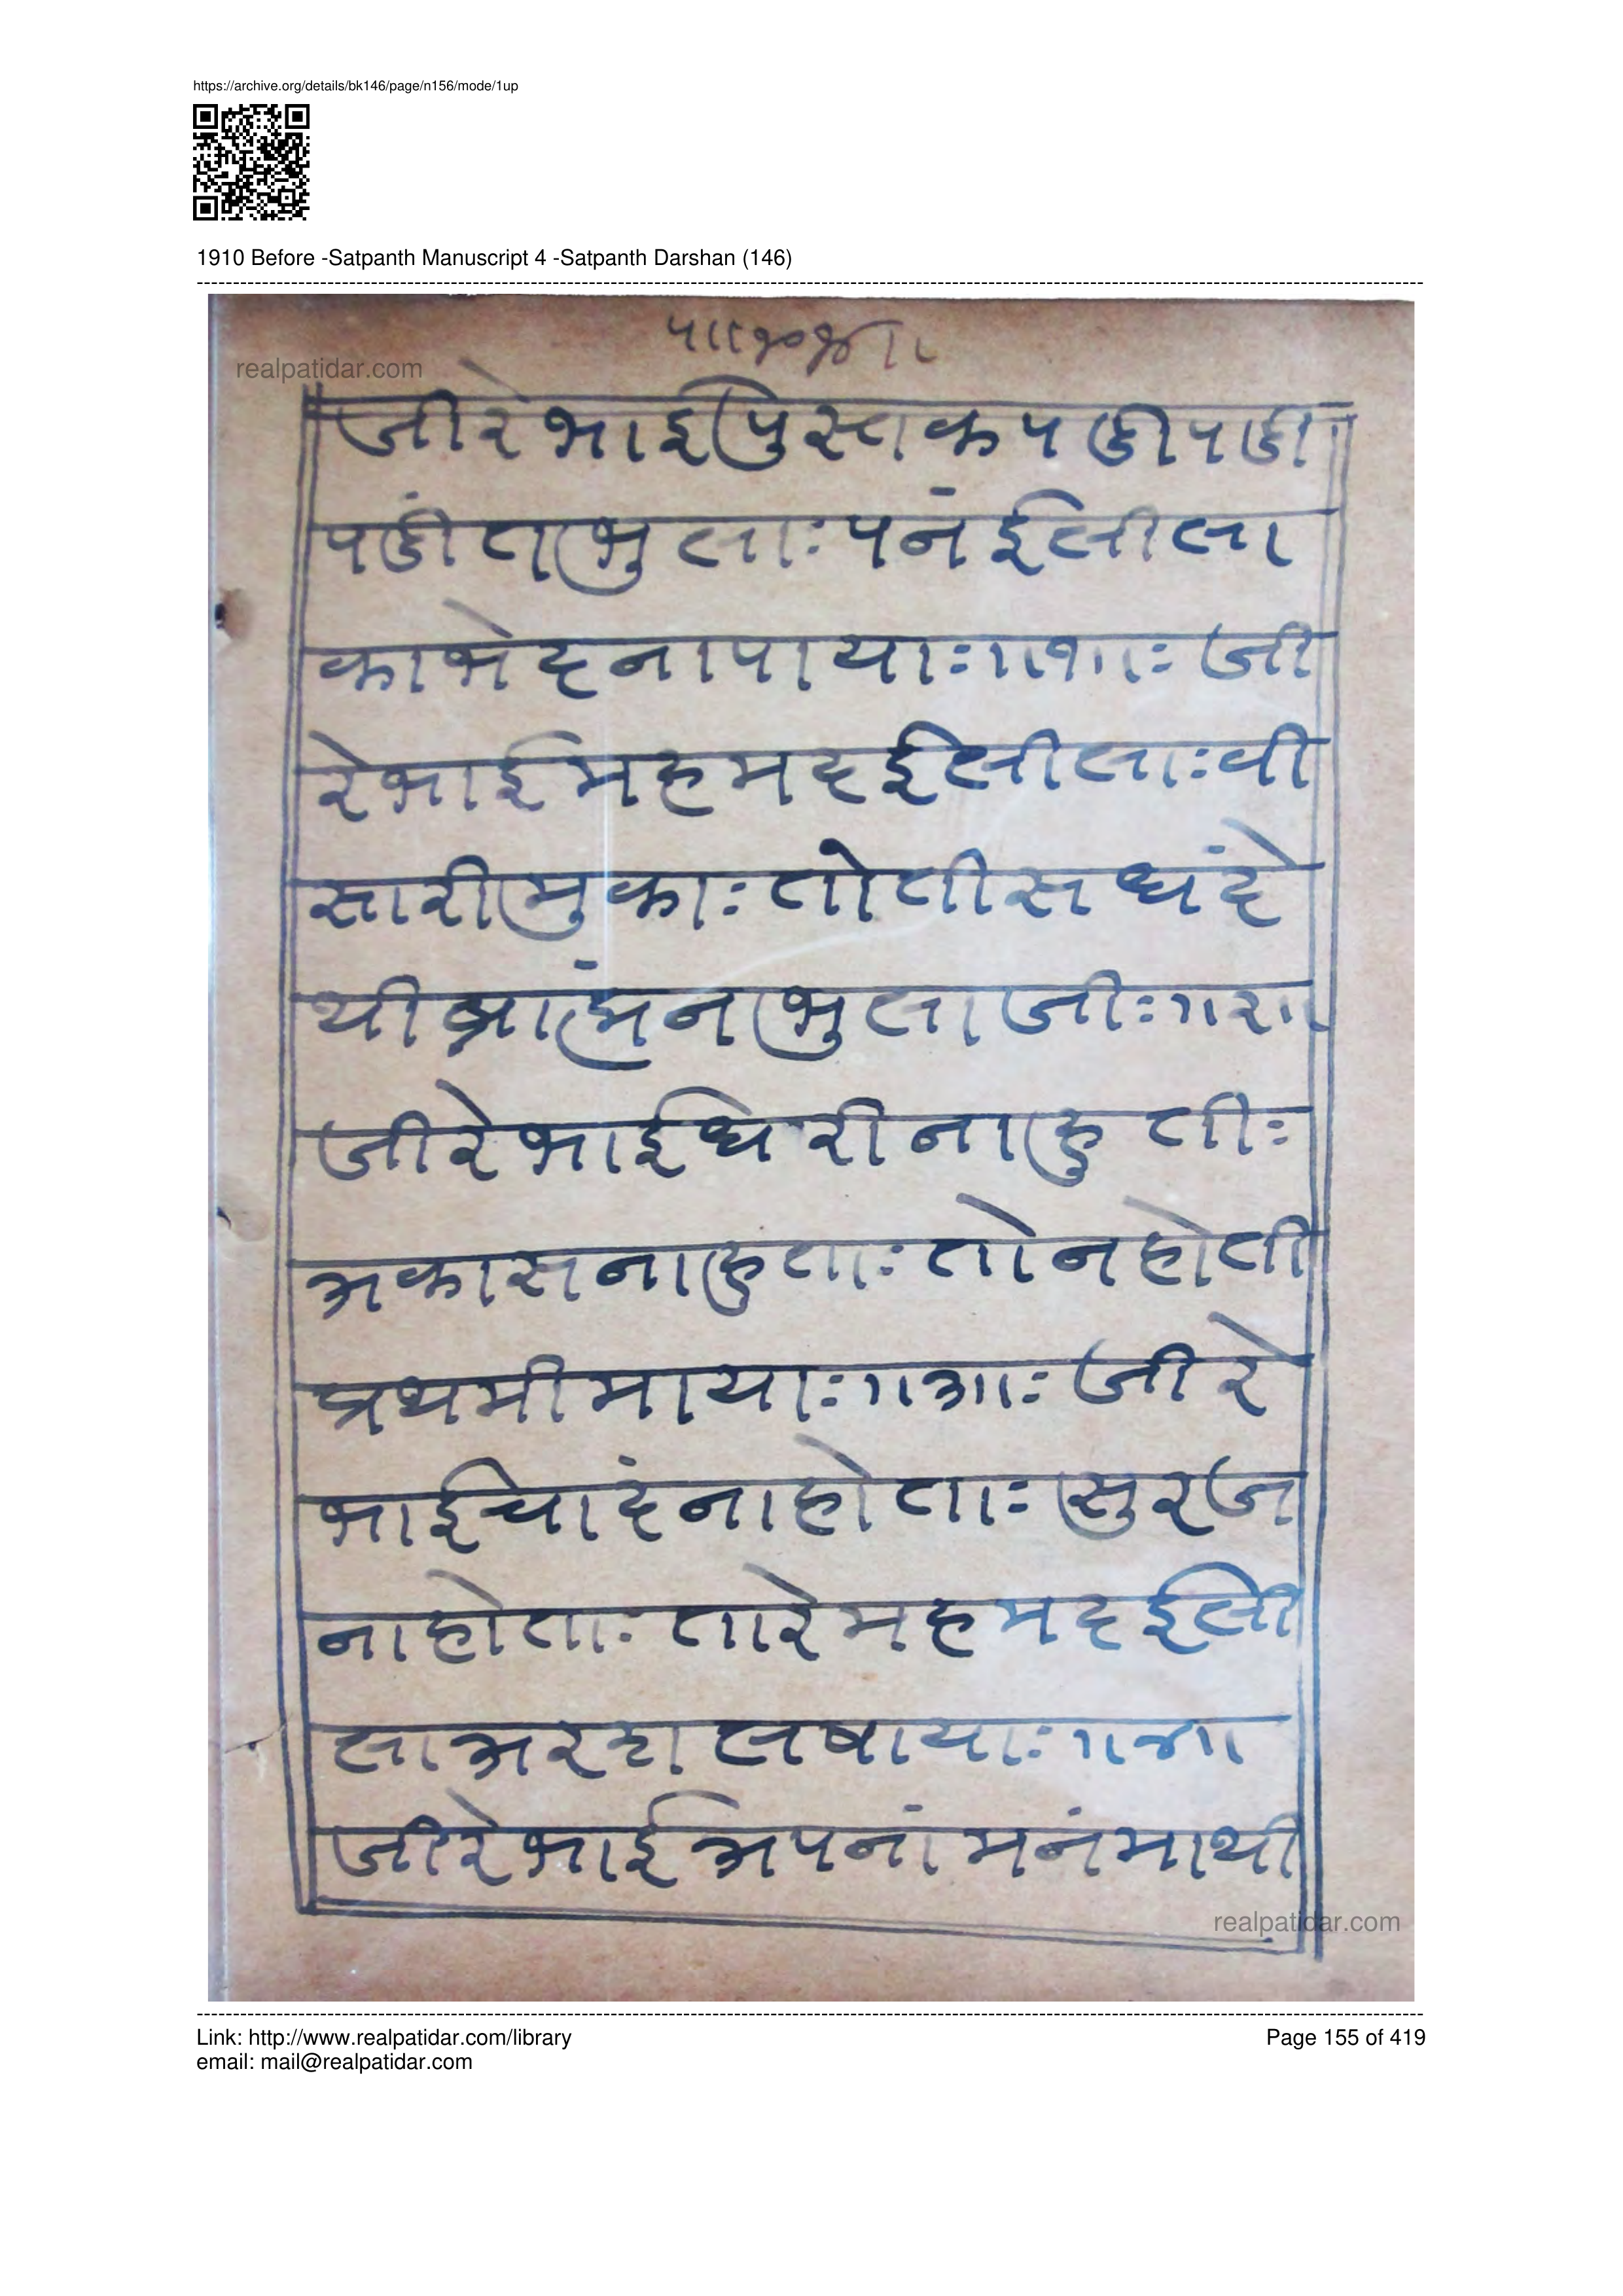 https://archive.org/details/bk146/page/n156/mode/1up
1910 Before -Satpanth Manuscript 4 -Satpanth Darshan (146)
realpatidar.com
जीरेभाईपुस्तकपडीपडी
पडींतभुलाःपनंईलीला
काभेदनापायाः॥१॥ः जी
रेभाईमहमदईलीलाःवी
सारीमुकाः तोतीसधंदे
थीब्राह्मंनभुलाजीः॥२॥
जीरेभाईधरीनाहुतीः
अकासनाहुताः तोनहोती
प्रथमीमायाः॥३॥ः जीरे
भाईचादंनाहोताः सुरज
नाहोताः तारेमहमदईली
ला अरदालषायाः॥४॥
जीरेभाईअपनांमनंमाथी
realpatidar.com
Link: http://www.realpatidar.com/library
Page 155 of 419
email: mail@realpatidar.com